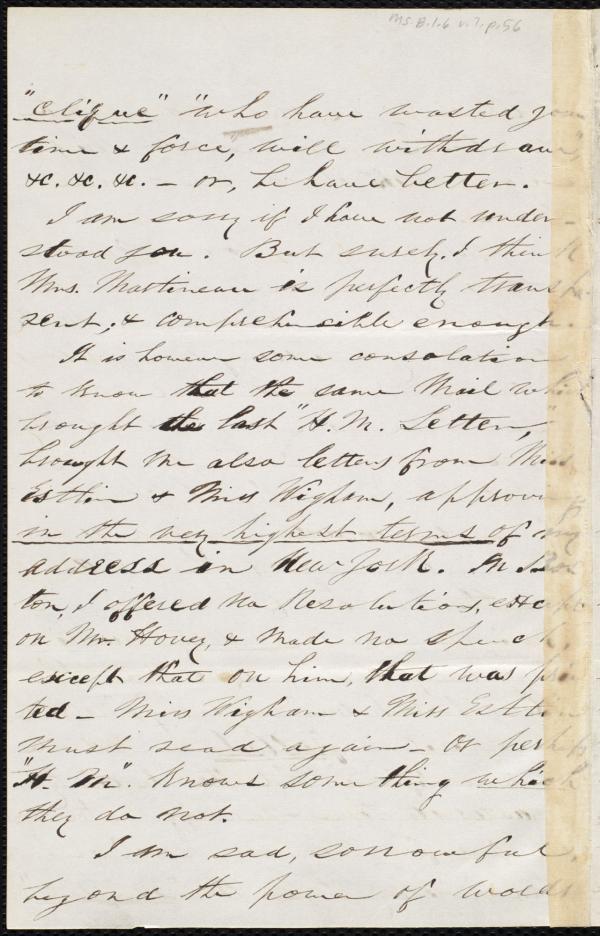 Ms. B. 1. 6 v. 7. p. 56
"clique" "who have wasted your
time & force", will withdraw",
&c. &c. &c. – or, behave better.
I am sorry if I have not under-
stood you. But surely, I think
Mrs. Martineau is perfectly transpa
rent, & comprehensible enough.
It is however some consolation
to know that the same Mail which
brought the last "H. M. Letter,"
brought me also letters from Miss
Estlin & Miss Wigham, approving
in the very highest terms of my
address in New York. In Bos
ton, I offered no Resolution, except
on Mr. Hovey, & made no speech,
except that on him, that was prin
ted – Miss Wigham & Miss Estlin
must read again – or perhaps
"H. M". knows something which
they do not.
I am sad, sorrowful,
beyond the power of words